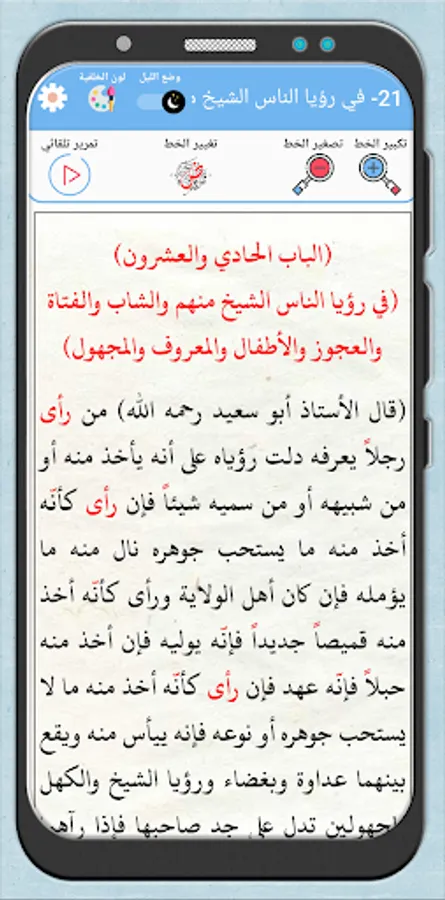 وضع الليل
لون الخلفية
21- في رؤيا الناس الشيخ
تكبير الخط
تصغير الخط
تغيير الخط
تمرير تلقائي
(الباب الحادي والعشرون)
(في رؤيا الناس الشيخ منهم والشاب والفتاة
والعجوز والأطفال والمعروف والمجهول)
(قال الأستاذ أبو سعيد رحمه الله) من رأى
رجلاً يعرفه دلت رؤياه على أنه يأخذ منه أو
من شبيهه أو من سميه شيئاً فإن رأى كأنّه
أخذ منه ما يستحب جوهره نال منه ما
يؤمله فإن كان أهل الولاية ورأى كأنّه أخذ
منه قميصاً جديداً فإنّه يوليه فإن أخذ منه
حبلاً فإنّه عهد فإن رأى كأنّه أخذ منه ما لا
يستحب جوهره أو نوعه فإنه ييأس منه ويقع
بينهما عداوة وبغضاء ورؤيا الشيخ والكهل
المجهولين تدل على جد صاحبها فإذا رآهما